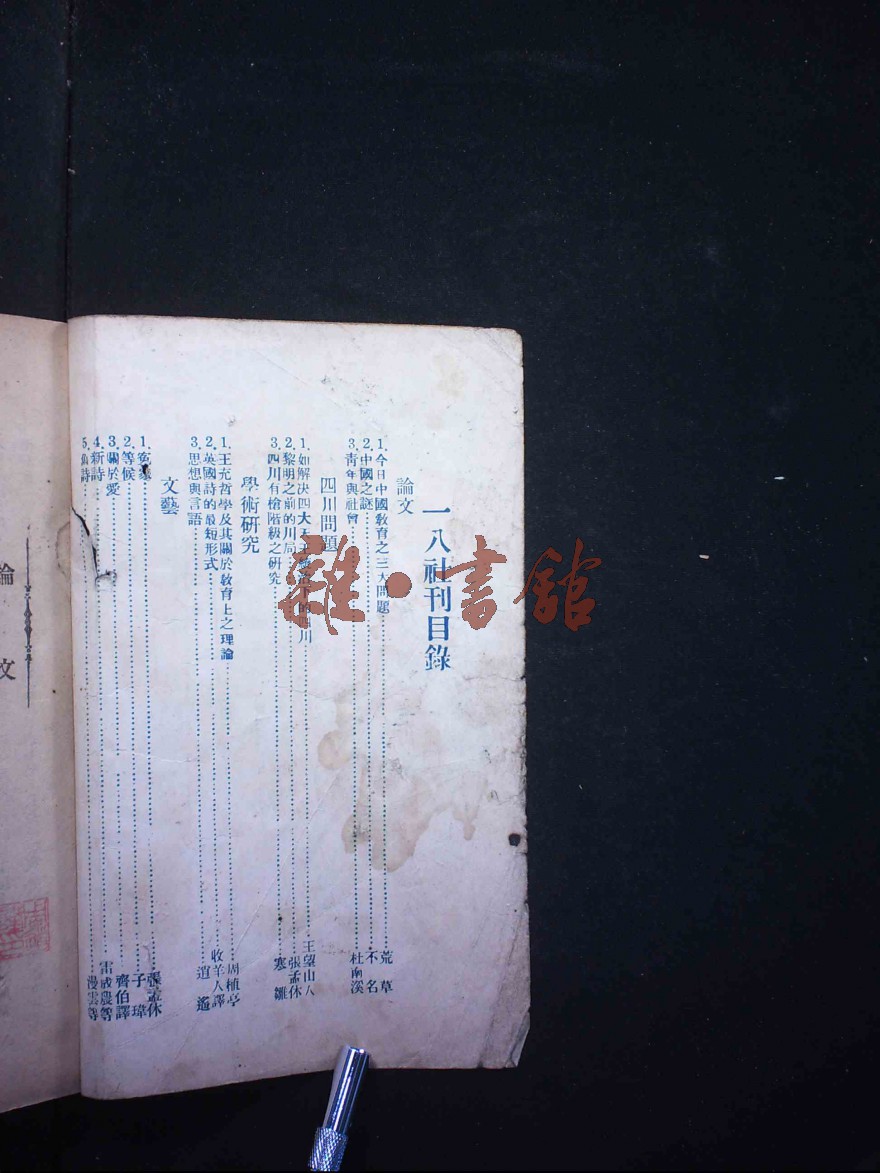 一八社刊目錄
論文
1. 今日中國教育之三大問題 荒草
2. 中國之謎 不名
3. 青年與社會 杜南溪
四川問題
1. 如解決四大天 川 王望山人
2. 黎明之前的川局 張孟休
3. 四川有槍階級之研究 寒雛
學術研究
1. 王充哲學及其關於教育上之理論 周植亭
2. 英國詩的最短形式 收羊人譯
3. 思想與言語 逍遙
文藝
1. 張孟休
2. 等候 子瑋
3. 關於愛 齊伯譯
4. 新詩 雷成農等
5. 舊詩 漫雲等
論文
雜·書館